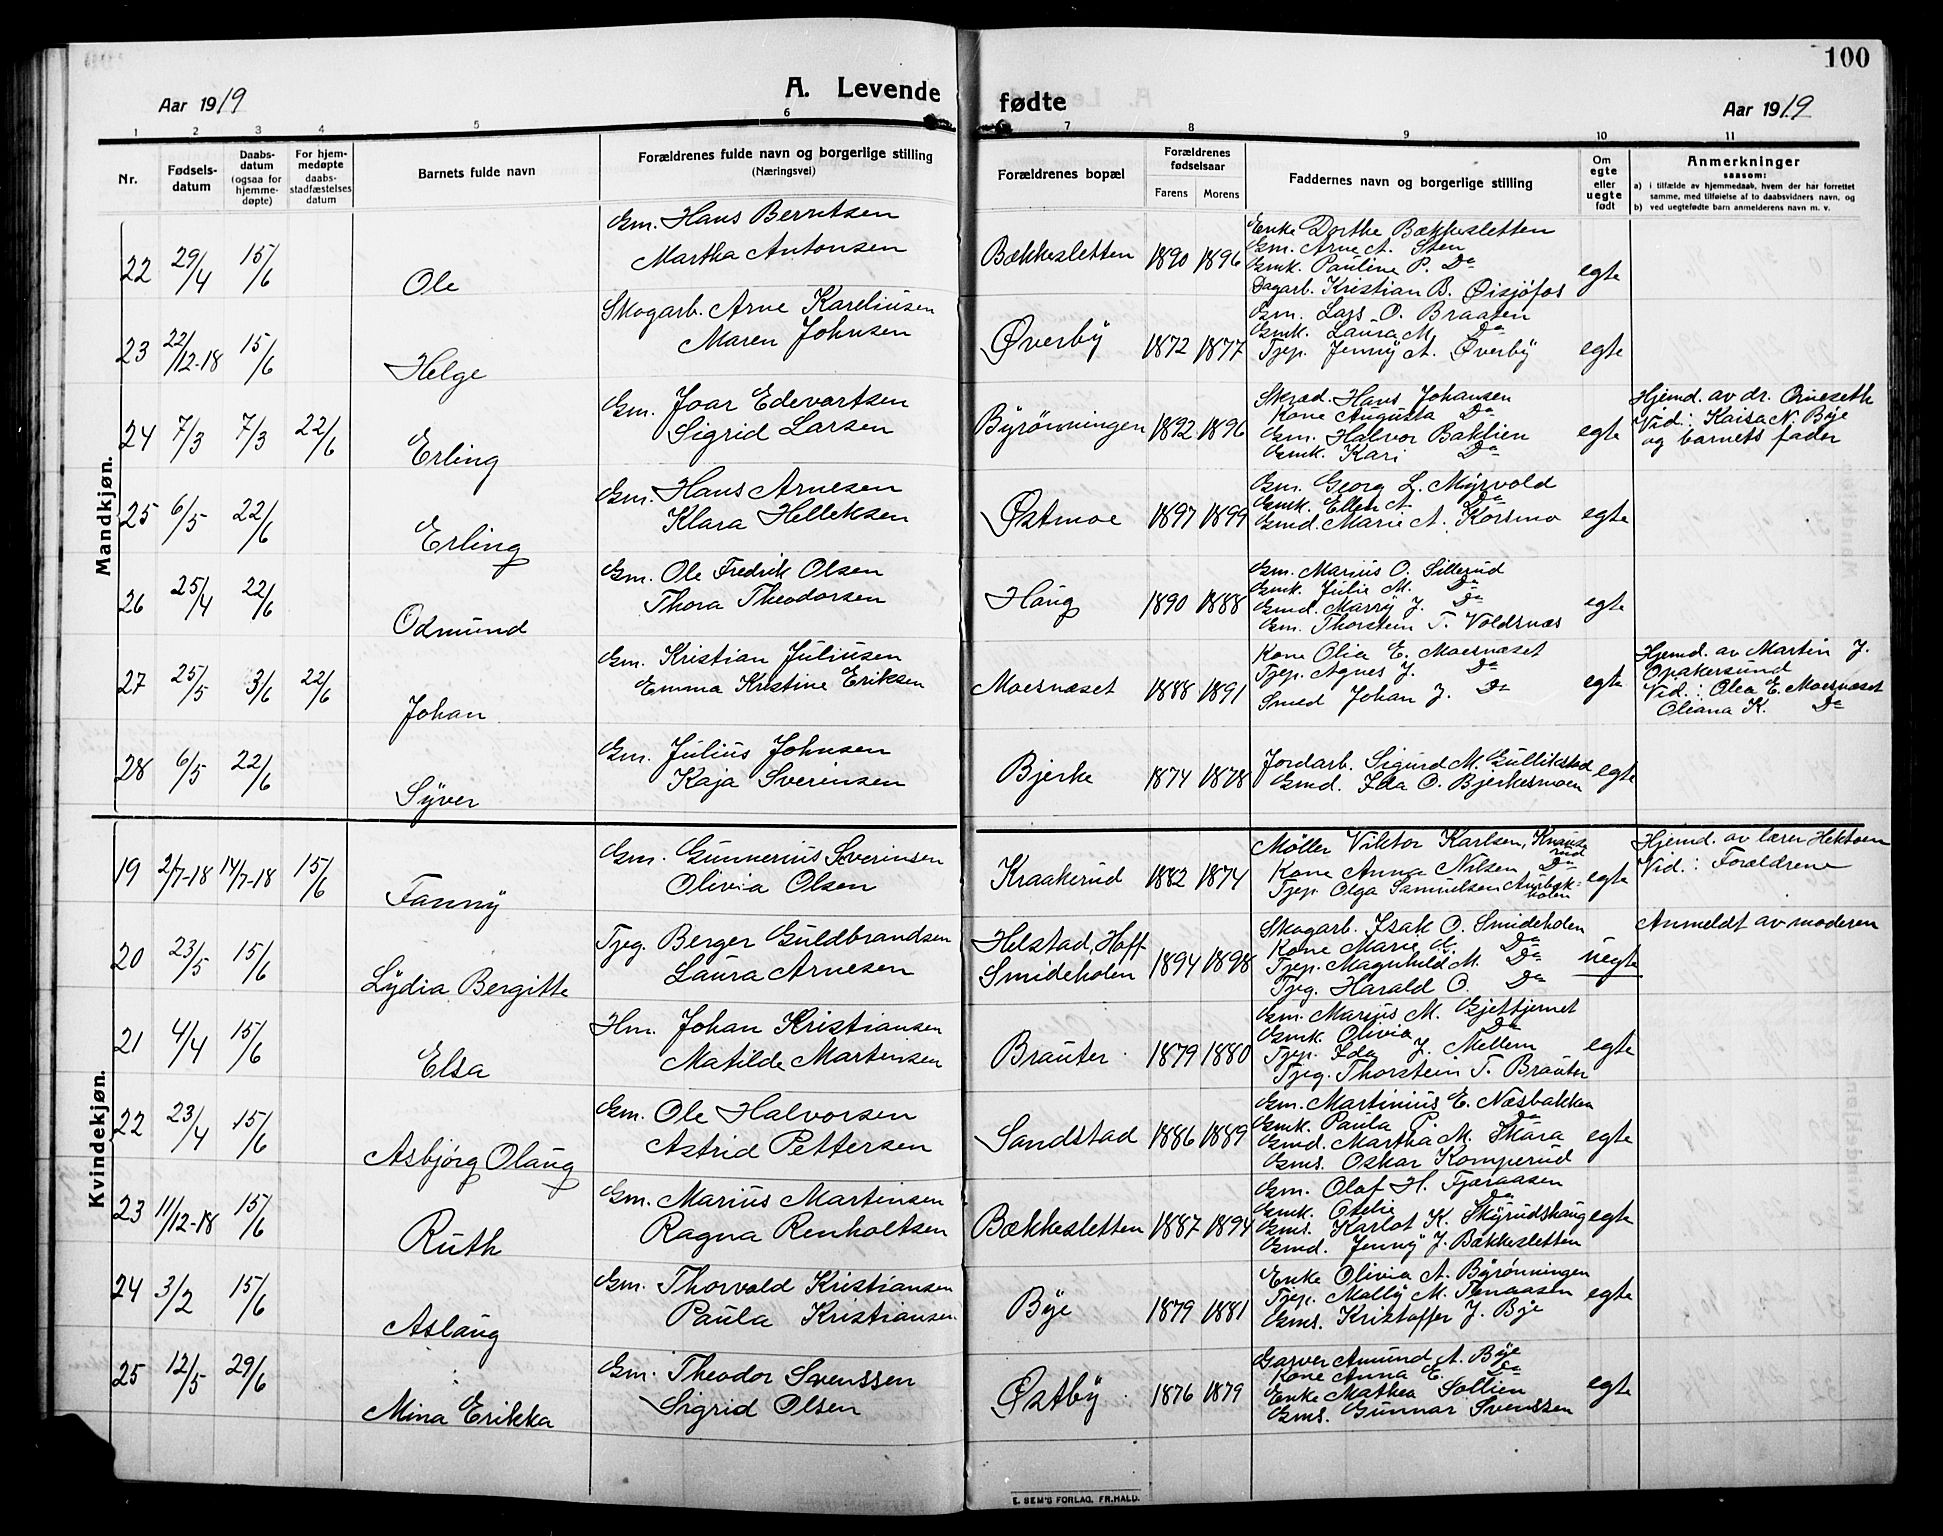 100
Aar 1919
A. Levende
fødte
Aar 1919
1 2 3 4 5 6 7 8 9 10 11
Nr.
Fødsels-
datum
Daabs-
datum
(ogsaa for
hjemme-
døpte)
For hjem-
medøpte
daabs-
stadfæstelses
datum
Barnets fulde navn
Forældrenes fulde navn og borgerlige stilling
(Næringsvei)
Forældrenes bopæl
Forældrenes
fødselsaar
Farens Morens
Faddernes navn og borgerlige stilling
Om
egte
eller
uegte
født
Anmerkninger
saasom:
a) i tilfælde av hjemmedaab, hvem der har forrettet
samme, med tilføielse af to daabsvidners navn, og
b) ved uegtefødte barn anmelderens navn m. v.
Mandkjøn.
22 29/4 15/6 Ole
Gm. Hans Berntsen
Martha Antonsen
Bækkesletten 1890 1896
Enke Dorthe Bækkesletten
Gm. Arne A. Sten
Gmk. Pauline P. Do
Dagarb. Kristian B. Øisjøfos
egte
23 22/12-18 15/6 Helge
Skogarb. Arne Kareliusen
Maren Johnsen
Øverby 1872 1877
Gm. Lars O. Braaten
Gmk. Laura M. Do
Tjep. Jenny A. Øverby
egte
24 7/3 7/3 22/6 Erling
Gm. Joar Edevartsen
Sigrid Larsen
Byrønningen 1892 1896
Skræd. Hans Johansen
Kone Augusta Do
Gm. Halvor Baklien
Gmk. Kari Do
egte
Hjemd. av dr.
Vid: Kaisa N. Bye
og barnets fader
25 6/5 22/6 Erling
Gm. Hans Arnesen
Klara Helleksen
Østmoe 1897 1899
Gm. Georg L. Myrvold
Gmk. Ellen A. Do
Gmd. Marie A. Korsmo
egte
26 25/4 22/6 Odmund
Gm. Ole Fredrik Olsen
Thora Theodorsen
Haug 1890 1888
Gm. Marius O. Sillerud
Gmk. Julie M. Do
Gmd. Marry J. Do
Gm. Thorstein T. Voldsnæs
egte
27 25/5 3/6 22/6 Johan
Gm. Kristian Juliusen
Emma Kristine Eriksen
Moesnæset 1888 1891
Kone Olia E. Moesnæset
Tjep. Agnes J. Do
Smed Johan J. Do
egte
Hjemd. av Martin J.
Opakersund
Vid: Olea E. Moesnæset
Oliana K. Do
28 6/5 22/6 Syver
Gm. Julius Johnsen
Kaja Sverinsen
Bjerke 1874 1878
Jordarb. Sigurd M. Gulliksstad
Gmd. Ida O. Bjerkesmoen
egte
Kvindekjøn.
19 2/7-18 14/7-18 15/6 Fanny
Gm. Gunnerius Sverinsen
Olivia Olsen
Kraakerud 1882 1874
Møller Viktor Karlsen,
Kone Anna Nilsen Do
Tjep. Olga Samuelsen
egte
Hjemd. av lærer Hektoen
Vid: Forældrene
20 23/5 15/6 Lydia Bergitte
Tjeg. Berger Guldbrandsen
Laura Arnesen
Helstad, Hoff
Smideholen 1894 1898
Skogarb. Isak O. Smideholen
Kone Marie Do
Tjep. Magnhild M. Do
Tjeg. Harald O. Do
uegte
Anmeldt av moderen
21 4/4 15/6 Elsa
Hm. Johan Kristiansen
Matilde Martinsen
Brauter 1879 1880
Gm. Marius M. Gjettjernet
Gmk. Olivia Do
Tjep. Ida J. Mellem
Tjeg. Thorstein T. Brauter
egte
22 23/4 15/6 Asbjørg Olaug
Gm. Ole Halvorsen
Astrid Pettersen
Sandstad 1886 1889
Gm. Martinius E. Næsbakken
Gmk. Paula P. Do
Gmd. Martha M. Skara
Gms. Oskar Komperud
egte
23 11/12-18 15/6 Ruth
Gm. Marius Martinsen
Ragna Renholtsen
Bækkesletten 1887 1894
Gm. Olaf H. Tjæraasen
Gmk. Otelie Do
Gms. Karlot K. Skyrudshaug
Gmd. Jenny J. Bækkesletten
egte
24 3/2 15/6 Aslaug
Gm. Thorvald Kristiansen
Paula Kristiansen
Bye 1879 1881
Enke Olivia A. Byrønningen
Tjep. Mally M.
Gms. Kristoffer J. Bye
egte
25 12/5 29/6 Mina Erikka
Gm. Theodor Svenssen
Sigrid Olsen
Østby 1876 1879
Garver Amund A. Bye
Kone Anna E. Do
Enke Mathea Sollien
Gms. Gunnar Svenssen
egte
E. SEM'S FORLAG, FR.HALD.